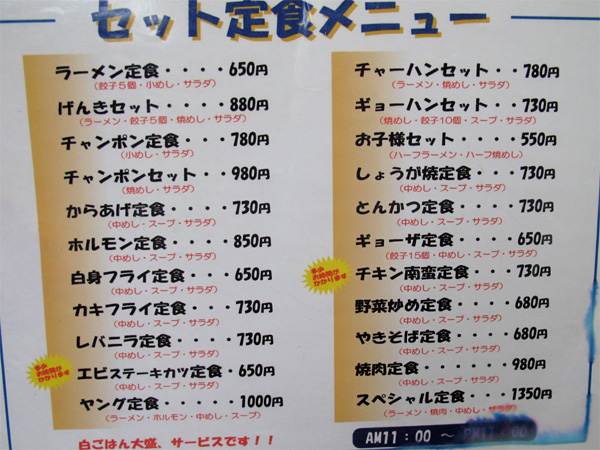 セット定食メニュー
ラーメン定食・・・・650円
（餃子５個・小めし・サラダ）
げんきセット・・・・880円
（ラーメン・餃子５個・焼めし・サラダ）
チャンポン定食・・・・780円
（小めし・サラダ）
チャンポンセット・・・980円
（焼めし・サラダ）
からあげ定食・・・・730円
（中めし・スープ・サラダ）
ホルモン定食・・・・850円
（中めし・スープ・サラダ）
白身フライ定食・・・650円
（中めし・スープ・サラダ）
カキフライ定食・・・730円
（中めし・スープ・サラダ）
レバニラ定食・・・・730円
（中めし・スープ・サラダ）
多少
お時間が
かかります
エビステーキカツ定食・650円
（中めし・スープ・サラダ）
ヤング定食・・・・・1000円
（ラーメン・ホルモン・中めし・スープ）
白ごはん大盛、サービスです！！
チャーハンセット・・780円
（ラーメン・焼めし・サラダ）
ギョーハンセット・・730円
（焼めし・餃子10個・スープ・サラダ）
お子様セット・・・・550円
（ハーフラーメン・ハーフ焼めし）
しょうが焼定食・・・730円
（中めし・スープ・サラダ）
とんかつ定食・・・・730円
（中めし・スープ・サラダ）
ギョーザ定食・・・・650円
（餃子15個・中めし・スープ・サラダ）
多少
お時間が
かかります
チキン南蛮定食・・・730円
（中めし・スープ・サラダ）
野菜炒め定食・・・・680円
（中めし・スープ・サラダ）
やきそば定食・・・・680円
（中めし・スープ・サラダ）
焼肉定食・・・・・・980円
（中めし・スープ・サラダ）
スペシャル定食・・・1350円
（ラーメン・焼肉・中めし・サラダ）
AM11：00 ～ PM11：00